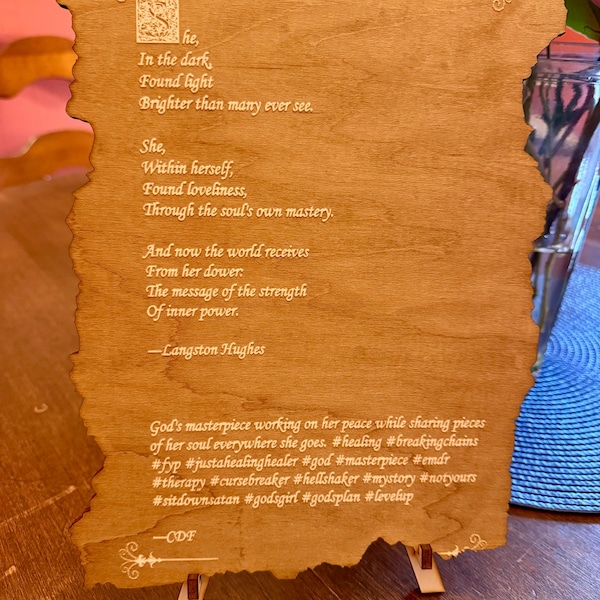 She,
In the dark,
Found light
Brighter than many ever see.
She,
Within herself,
Found loveliness,
Through the soul's own mastery.
And now the world receives
From her dower:
The message of the strength
Of inner power.
—Langston Hughes
God's masterpiece working on her peace while sharing pieces
of her soul everywhere she goes. #healing #breakingchains
#fyp #justahealinghealer #god #masterpiece #emdr
#therapy #cursebreaker #hellshaker #mystory #notyours
#sitdownsatan #godsgirl #godsplan #levelup
—CDF